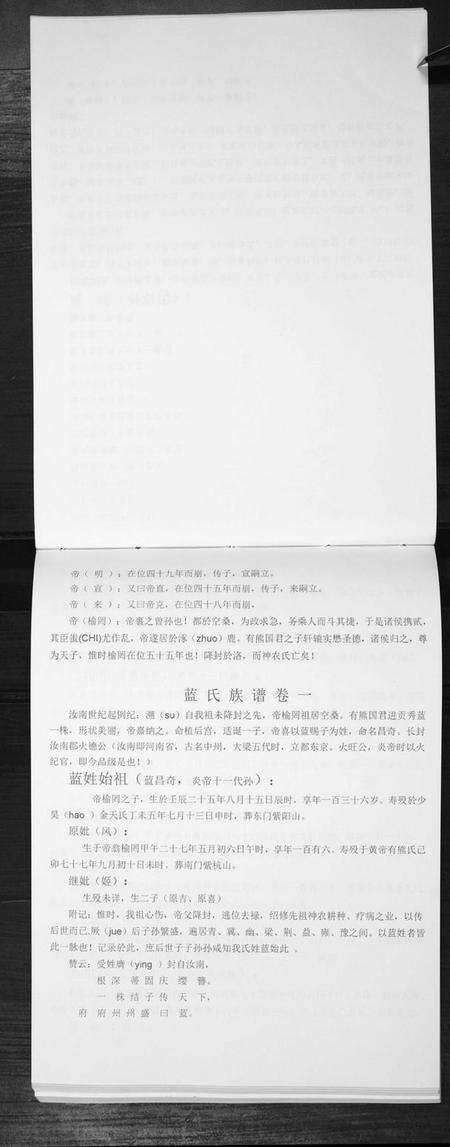 帝（ 明 ）：在位四十九年而崩，传子，宣嗣立。
帝（ 宣 ）：又曰帝直，在位四十五年而崩，传子，来嗣立。
帝（ 来 ）：又曰帝克，在位四十八年而崩，
帝（榆罔）：帝裹之曾孙也！都於空桑，为政求急，务乘人而斗其捷，于是诸侯携贰，
其臣蚩(CHI)尤作乱，帝遂居於涿（zhuo）鹿。有熊国君之子轩辕实懋圣德，诸侯归之，尊
为天子，惟时榆罔在位五十五年也！降封於洛，而神农氏亡矣！
蓝 氏 族 谱 卷 一
汝南世纪起例纪：溯（su）自我祖未降封之先，帝榆罔祖居空桑，有熊国君进贡秀蓝
一株，形状美丽，帝嘉纳之。命植后宫，适诞一子，帝喜以蓝赐子为姓，命名昌奇。长封
汝南郡火德公（汝南即河南省，古名中州，大梁五代时，立都东京。火旺公，炎帝时以火
纪官，即今品级是也！）
蓝姓始祖（蓝昌奇，炎帝十一代孙）：
帝榆罔之子，生於壬辰二十五年八月十五日辰时，享年一百三十六岁。寿殁於少
昊（hao ）金天氏丁未五年七月十三日申时，葬东门紫阳山。
原妣（凤）：
生于帝翦榆罔甲午二十七年五月初六日午时，享年一百有六。寿殁于黄帝有熊氏己
卯七十七年九月初十日未时。葬南门紫杭山。
继妣（姬）：
生殁未详，生二子（原吉、原喜）
附记：惟时，我祖心伤，帝父降封，逃位去禄，绍修先祖神农耕种、疗病之业，以传
后世而已.厥（jue）后子孙繁盛，遍居青、冀、幽、梁、荆、益、雍、豫之间。以蓝姓者皆
此一脉也！记录於此，庶后世子子孙孙咸知我氏姓蓝始此 。
赞云：受姓膺（ying ）封自汝南，
根 深 蒂 固 庆 缨 簪。
一 株 结 子 传 天 下，
府 府 州 州 盛 曰 蓝。